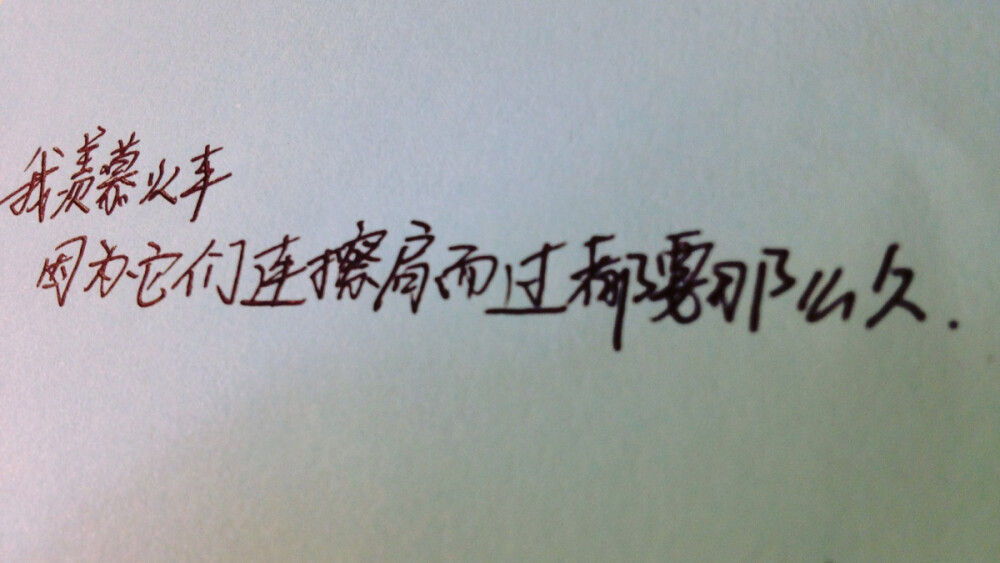 我羡慕火车
因为它们连擦肩而过都要那么久.